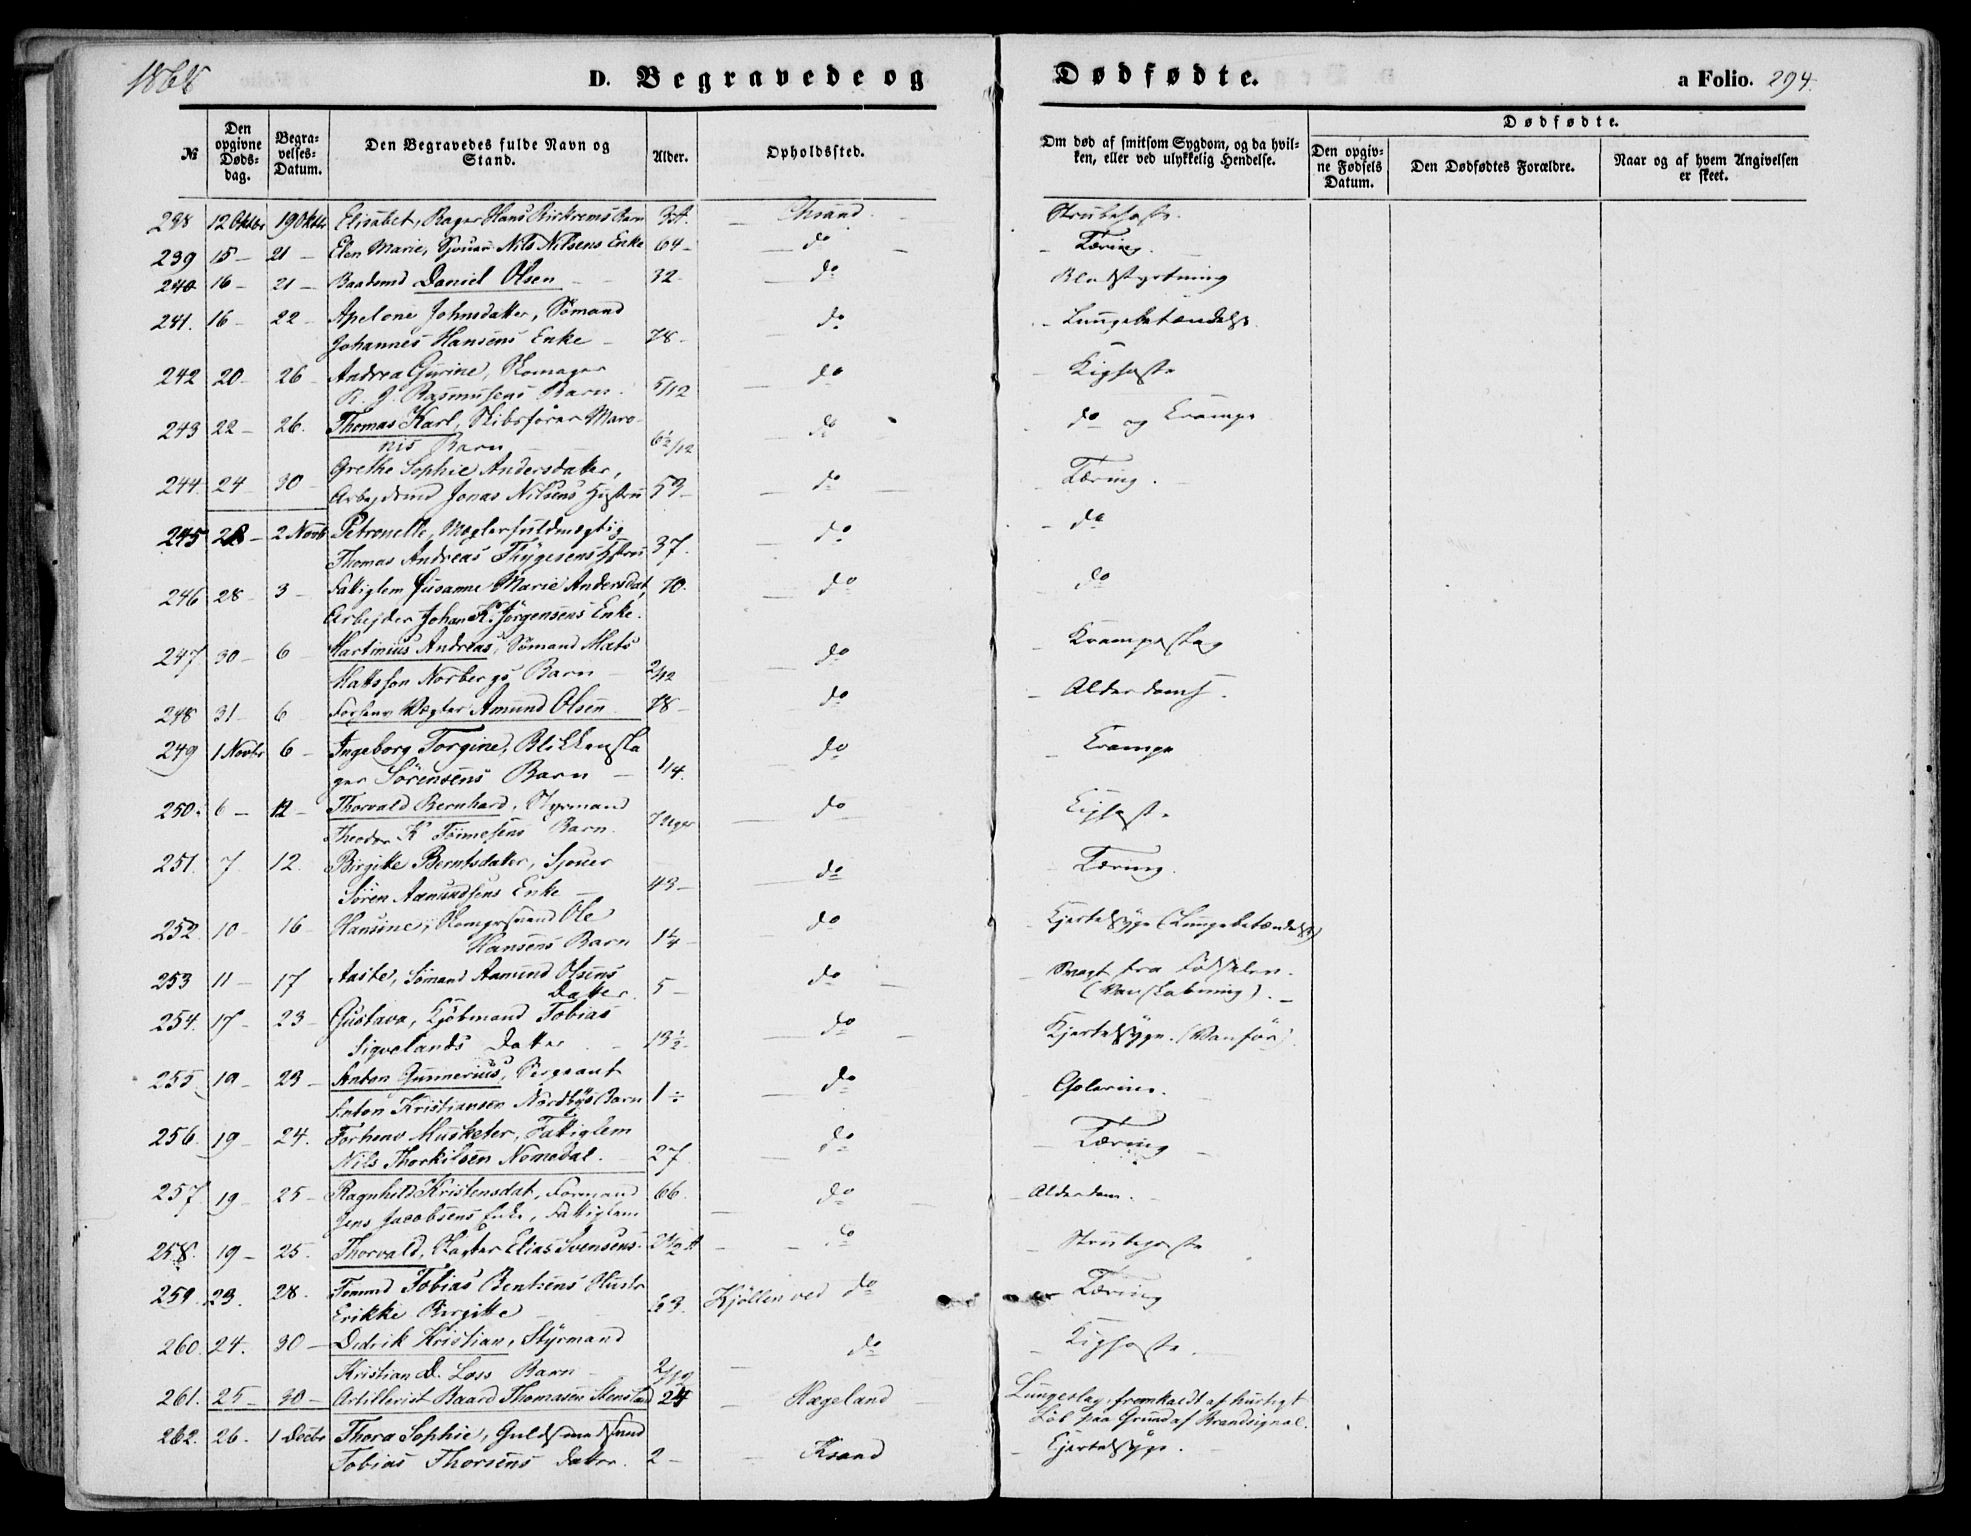 1868
D. Begravede og Dødfødte.
a Folio. 294.
№
Den opgivne Døds-dag.
Begra-velses-Datum.
Den Begravedes fulde Navn og Stand.
Alder.
Opholdssted.
Om død af smitsom Sygdom, og da hvil-ken, eller ved ulykkelig Hendelse.
Dødfødte.
Den opgiv-ne Fødsels Datum.
Den Dødfødtes Forældre.
Naar og af hvem Angivelsen er skeet.
238 12 Oktbr 19 Oktbr Elisabet, Hans Birkrems Barn 3 Ksand. Strubehoste.
239 15 – 21 – Elen Marie, Sjouer Nils Nilsens Enke 64 – do Tæring.
240 16 – 21 – Baadsmd Daniel Olsen 32 – do Blodstyrtning
241. 16 – 22 – Apelone Johnsdatter, Sømand
Johannes Hansens Enke – 78. do Lungebetændelse.
242 20 – 26 – Andrea Gurine, Skomager
R. J. Rasmusens Barn. 5/12 do Kighoste
243 22 – 26. Thomas Karl, Skibsfører Maro-
nis Barn 6½/12 do do og Krampe
244. 24 – 30 – Grethe Sophie Andersdatter,
Arbejdsmd Jonas Nilsens Hustru 53 – do Tæring.
245 28 – 2 Novb Petronelle, Mæglerfuldmægtig
Thomas Andreas Thygesens Hstru 37. do do
246 28 – 3 – Fattiglem Susanne Marie Andersdat, 70. do do
Arbejder Johan K. Jørgensens Enke.
247 30 – 6 – Martinius Andreas, Sømand Mats
Mattsson Norbergs Barn – 2/12 do Krampeslag
248 31 – 6 – Forhenv Vægter Amund Olsen 78 – do Alderdoms.
249 1 Novbr 6 – Ingeborg Torgine, Blikkensla
ger Sørensens Barn – 1/4. do Krampe
250. 6 – 12 – Thorvald Bernhard, Styrmand
Theodor K Barn. 7 Uger do Kighoste.
251. 7. 12. Birgitte Berntsdatter, Sjouer
Søren Aanundsens Enke – 43 – do Tæring.
252. 10 – 16 – Hansine, Ole
Hansens Barn 1¼ – do Kjertelsyge (Lungebetændelse)
253 11 – 17 Aaste, Sømand Aanund Olsens
Datter. 5 – do Svagt fra Fødselen.
(Vanskabning). –
254. 17 – 23 – Gustava, Kjøbmand Tobias
Sigvelands Datter – 13½ – do Kjertelsyge. (Vanför)
255. 19 – 23 – Anton Gunnerius, Sergeant
Anton Kristiansen Nordbys Barn 1 do Cholerine.
256. 19 – 24. Forhenv Musketer, Fattiglem
Nils Thorkilsen Nomedal. – 27. do Tæring
257. 19 – 25 – Ragnhild Kristensdat, Formand 66. do Alderdom.
Jens Jacobsens Enke, Fattiglem
258. 19 – 25. Thorvald, Elias Svensens – 2 do Strubehoste
259. 23. 28. Tobias Bentsens Hustr
Erikke Birgitte 63. Kjöllen ved do Tæring
260. 24. 30 – Didrik Kristian, Styrmand
Kristian D. Loss Barn – 2/12 do Kighoste.
261. 25 – 30 – Artillerist Baard Thomasen Stensland 24 Hægeland Lungeslag, fremkaldt af hurtigt
Løb paa Grund af Brandsignal.
262. 26. 1 Decbr Thora Sophie, Guldsmedsvend
Tobias Thorsens Datter. 2 – Ksand Kjertelsyge.